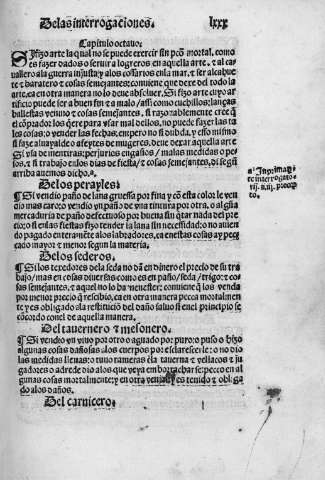 De las interrogaciones. lxxx
Capitulo octauo.
Si fizo arte la qual no se puede exercir sin pcõ mortal, como
es fazer dados o seruir a logreros en aquella arte. ⁊ al ca
uallero a la guerra injusta y a los cossarios en la mar. ⁊ ser alcahue
te ⁊ baratero ⁊ cosas semejantes: conuiene que dexe del todo la
arte. ca en otra manera no lo deue absoluer. Si fizo arte cuyo ar
tificio puede ser a buen fin ⁊ a malo / assi como cuchillos: lanças
ballestas veneno ⁊ cosas semejantes, si razonablemente cree q̃
el comprador los q̃ere para vsar mal dellos, no puede fazer las ta
les cosas: o vender las fechas; empero no si dubda, y esso mismo
si faze aluayalde o afeytes de mugeres, deue dexar aquella arte
Si vsa de mentiras: perjurios engaños / malas medidas o pe
sos, ⁊ si trabajo en los dias de fiesta / ⁊ cosas semejantes, di segũ
arriba auemos dicho.
De los perayles.
Si vendio paño de lana gruessa por fina y cõ esta color le ven
dio mas caro: o vendio vn paño de vna tintura por otra, o algũa
mercaduria de paño defectuoso por buena sin q̃tar nada del pre
cio: o si en las fiestas fizo tender la lana sin necessidad: o no auien
do pagado enteramẽte a los labradores, ca en estas cosas ay pec
cado mayor ⁊ menor segun la materia.
De los sederos.
Si los texedores de la seda no dã en dinero el precio de su tra
bajo / mas en cosas diuersas como es en paño / seda / trigo: ⁊ co
sas semejantes, ⁊ aquel no lo ha menester: conuiene q̃ los venda
por menor precio q̃ rescibio, ca en otra manera pecca mortalmẽ
te y es obligado a la restituciõ del daño saluo si en el principio se
cõcordo conel de aquella manera.
Del tauernero ⁊ mesonero.
Si vendio vn vino por otro o aguado por puro: o puso o hizo
algunas cosas dañosas a los cuerpos por esclarescerle: o no dio
las medidas llenas: o vino tauernas
gadores o adrede dio a los que veya embotrachar se: pecco en al
gunas cosas mortalmente: y en otra es tenido ⁊ obliga
do a los daños.
Del carnicero.